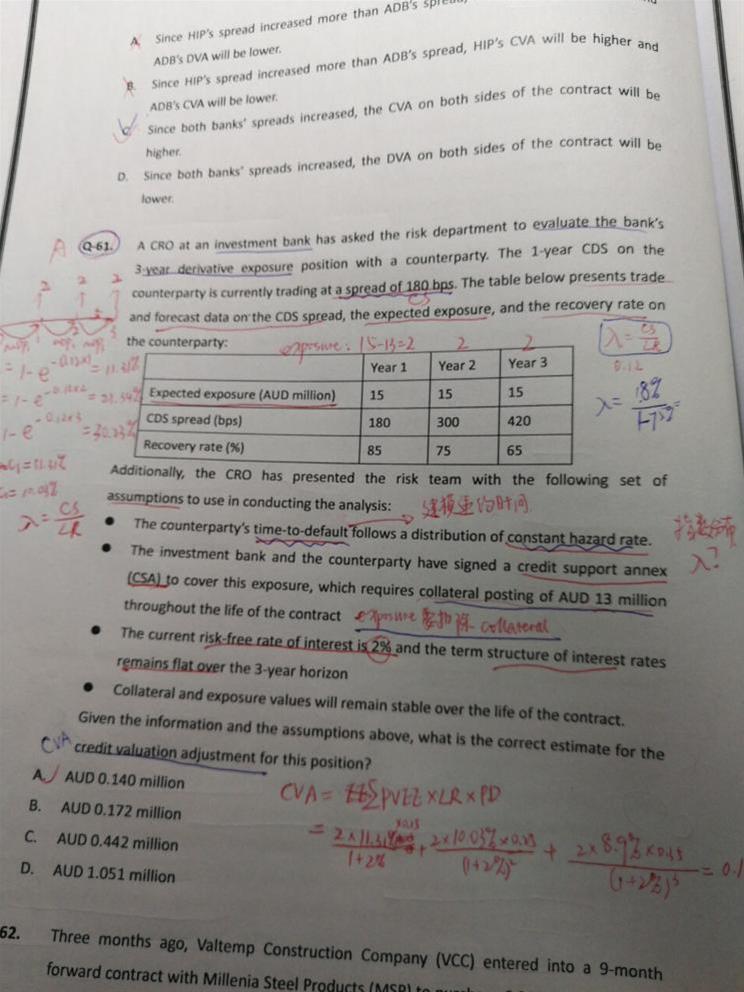 A. Since HIP's spread increased more than ADB's
ADB's DVA will be lower.
B. Since HIP's spread increased more than ADB's spread, HIP's CVA will be higher and
ADB's CVA will be lower.
Since both banks' spreads increased, the CVA on both sides of the contract will be
higher.
D. Since both banks' spreads increased, the DVA on both sides of the contract will be
lower.
A Q-61. A CRO at an investment bank has asked the risk department to evaluate the bank's
3-year derivative exposure position with a counterparty. The 1-year CDS on the
counterparty is currently trading at a spread of 180 bps. The table below presents trade
and forecast data on the CDS spread, the expected exposure, and the recovery rate on
the counterparty:
exposure: 15-13=2 2 2
λ = CS/LR
0.12
λ = 1.8%
2 2 2
= 1 - e
= 11.31%
= 1 - e^-0.12×2 = 21.34%
1 - e^-0.12×3 = 30.23%
λ = CS/LR
Year 1 Year 2 Year 3
Expected exposure (AUD million) 15 15 15
CDS spread (bps) 180 300 420
Recovery rate (%) 85 75 65
Additionally, the CRO has presented the risk team with the following set of
assumptions to use in conducting the analysis:
● The counterparty's time-to-default follows a distribution of constant hazard rate.
λ?
● The investment bank and the counterparty have signed a credit support annex
(CSA) to cover this exposure, which requires collateral posting of AUD 13 million
throughout the life of the contract
exposure 要扣除 collateral
● The current risk-free rate of interest is 2% and the term structure of interest rates
remains flat over the 3-year horizon
● Collateral and exposure values will remain stable over the life of the contract.
Given the information and the assumptions above, what is the correct estimate for the
CVA credit valuation adjustment for this position?
A. AUD 0.140 million
B. AUD 0.172 million
C. AUD 0.442 million
D. AUD 1.051 million
CVA = ΣPVEE×LR×PD
62. Three months ago, Valtemp Construction Company (VCC) entered into a 9-month
forward contract with Millenia Steel Products (MSP)